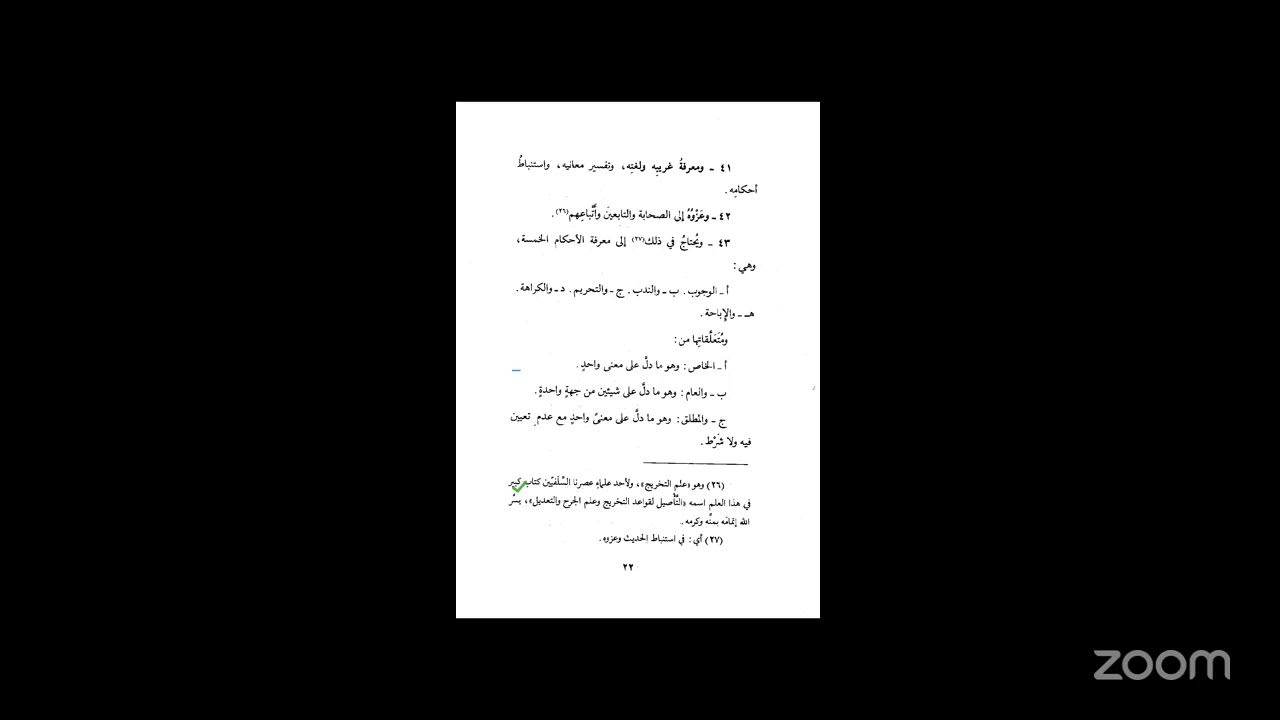 ٤١ ـ ومعرفةُ غريبِه ولغتِه، وتفسير معانيه، واستنباطُ
أحكامِه.
٤٢ ـ وعَزْوُهُ إلى الصحابة والتابعينَ وأَتْباعِهم(٢٦).
٤٣ ـ ويُحتاجُ في ذلك(٢٧) إلى معرفة الأحكام الخمسة،
وهي:
أ ـ الوجوب. ب ـ والندب. ج ـ والتحريم. د ـ والكراهة.
هـ ـ والإِباحة.
ومُتَعَلَّقاتِها من:
أ ـ الخاص: وهو ما دلَّ على معنى واحدٍ.
ب ـ والعام: وهو ما دلَّ على شيئين من جهةٍ واحدةٍ.
ج ـ والمطلق: وهو ما دلَّ على معنىً واحدٍ مع عدمِ تعيين
فيه ولا شَرْط.
(٢٦) وهو «علم التخريج»، ولأحد علماءِ عصرنا السَّلَفيّين كتاب كبير
في هذا العلم اسمه «التَّأصيل لقواعد التخريج وعلم الجرح والتعديل»، يسَّر
الله إتمامَه بمنِّه وكرمه.
(٢٧) أي: في استنباط الحديث وعزوه.
٢٢
zoom